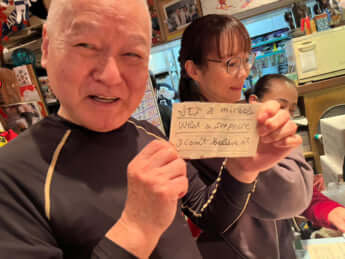 It's a miracle
What a surprise
I can't believe it